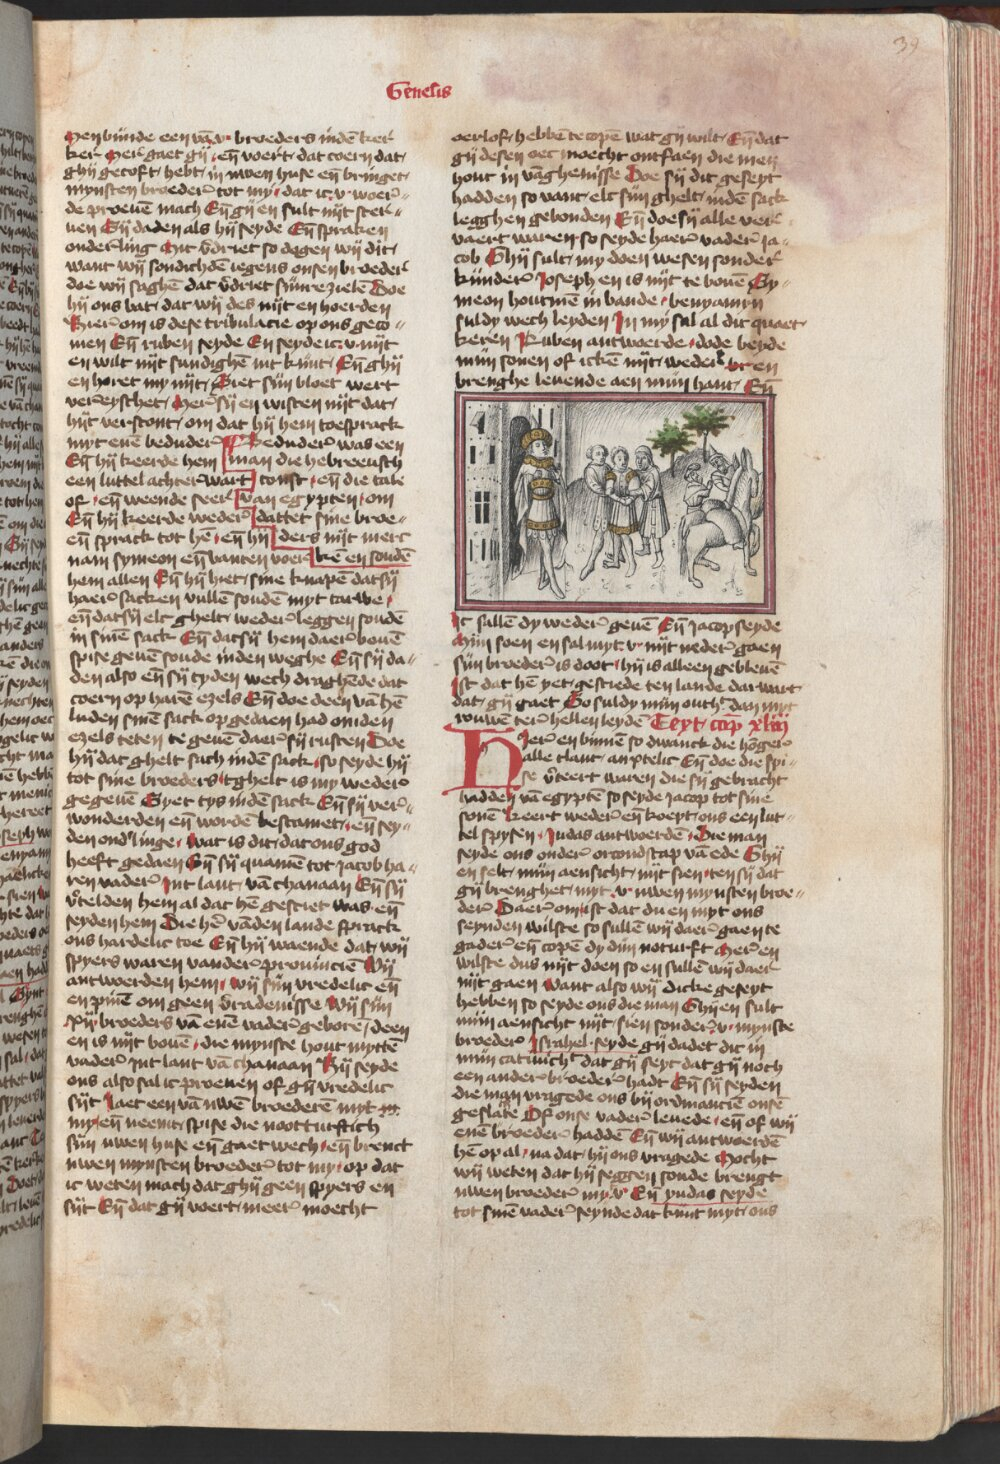 39
Genesis
Men binde een vā v broeders indē ker
ker Mer gaet gij eñ voert dat coern dat
ghij gecoft hebt in uwen huse en bringet
mynsten broeder tot my dat ic v woer
de proeuē mach Eñ gij en sult nijt ster
uen Sij daden als hij seyde Eñ spraken
onderling Mit v̄driet so dogen wij dit
want wij sondichdē iegens onsen broeder
doe wij saghē dat v̄driet sijnre zielē Doe
hij ons bat dat wij des nijt en hoerden
Hier om is dese tribulacie op ons geco
men Eñ ruben seyde En seyde ic v nijt
en wilt nijt sundighē int kint Eñ ghij
en horet my nijt Siet sijn bloet wert
vereyschet Mer sij en wisten nijt dat
hijt verstont om dat hij hem toesprack
myt enē beduder
Eñ hij keerde hem
een luttel achterwart
of eñ weende seer
Eñ hij keerde weder
eñ sprack tot hē eñ hij
nam symeon eñ vanten voer
Die beduder was een
man die hebreeusch
const eñ die tale
van egypten om
dattet sine broe
ders nijt merc
kē en soudē
hem allen Eñ hij hiet sine knapē dat sij
haer sacken vullē soudē myt tarwe
eñ dat sij elc ghelt weder leggen soudē
in sinē sack Eñ dat sij hem daer bouē
spise geuē soude inden weghe Eñ sij da
den also eñ sij tyden wech draghēde dat
coern op harē ezels Eñ doe deen vā hē
luden sinē sack op gedaen had om den
ezels teten te geuē daer sij rusten Doe
hij dat ghelt sach indē sack so seyde hij
tot sine broeders tghelt is my weder
gegeuē Syet tys indē sack Eñ sij ver
wonderden eñ wordē bescamet eñ sey
den ond'linge wat is dit dat ons god
heeft gedaen Eñ sij quamē tot jacob ha
ren vader Int lant vā chanaan Eñ sij
v̄telden hem al dat hē gesciet was eñ
seyden hem Die hē vāden lande sprack
ons hardelic toe Eñ hij waende dat wij
spyers waren vander prouinciē Wij
antwoerden hem wij sijn vredelic eñ
en pinē om geen v̄radenisse Wij sijn
xij broeders vā enē vader geborē deen
en is nijt bouē die mynste hout myttē
vader Int lant vā chanaan Hij seyde
ons also sal ic proeuen of gij vredelic
sijt Laet een vā uwē broederē myt
my eñ neemt spise die nootturftich
sijn uwen huse eñ gaet wech eñ brenct
uwen mynsten broeder tot my op dat
ic weten mach dat ghij geen spyers en
sijt Eñ dat gij voert meer moecht
oerlof hebbē te copē wat gij wilt Eñ dat
gij desen oec moecht ontfaen die men
hout in vāghenisse Doe sij dit geseyt
hadden so vant elc sijn ghelt indē sack
legghen gebonden Eñ doe sij alle ver
vaert waren so seyde haer vader Ja
cob Ghij sult my doen wesen sonder
kinder Joseph en is nijt te bouē Sy
meon hout mē in bande benyamyn
suldy wech leyden In my sal al dit quaet
keren Ruben antwoerde dode beyde
mijn sonen of ickē nijt weder en
brenghe leuende aen mijn hant Eñ
Ic sallē dy weder geuē Eñ jacop seyde
Mijn soen en sal myt v nijt neder gaen
sijn broeder is doot hij is alleen gebleuē
Ist dat hē yet gesciede ten lande darwart
dat gij gaet So suldy mijn outh' dan myt
rouwē ter hellen leydē Teyt cap̄ xliij
Hier en binnē so dwanck die hōger
alle tlant anxtelic Eñ doe die spi
se v̄teert waren die sij gebracht
hadden vā egyptē so seyde jacop tot sine
sonē keert weder eñ koept ons een lut
tel spysen Judas antwoerdē Die man
seyde ons onder orcondscap vā ede Ghij
en selt mijn aensicht nijt sien ten sij dat
gij brenghet myt v uwen mynsten broe
der Daer om ist dat du en myt ons
seynden wilste so sullē wij daer gaen te
gader eñ copē dy dijn noturft Mer en
wilste dus nijt doen so en sullē wij daer
nijt gaen Want also wij dicke geseyt
hebben so seyde ons die man Ghij en sult
mijn aensicht nijt sien sonder v mynste
broeder Israhel seyde gij dadet dit in
mijn cativich' dat gij seyt dat gij noch
een ander broeder hadt Eñ sij seyden
die man vragede ons bij ordinanciē onsē
geslate Of onse vader leuede eñ of wij
enē broeder haddē Eñ wij antwoerdē
hē op al na dat hij ons vragede Mocht
wij weten dat hij seggen soude brengt
uwen broeder my v Eñ yudas seyde
tot sinē vader seynde dat kint myt ons